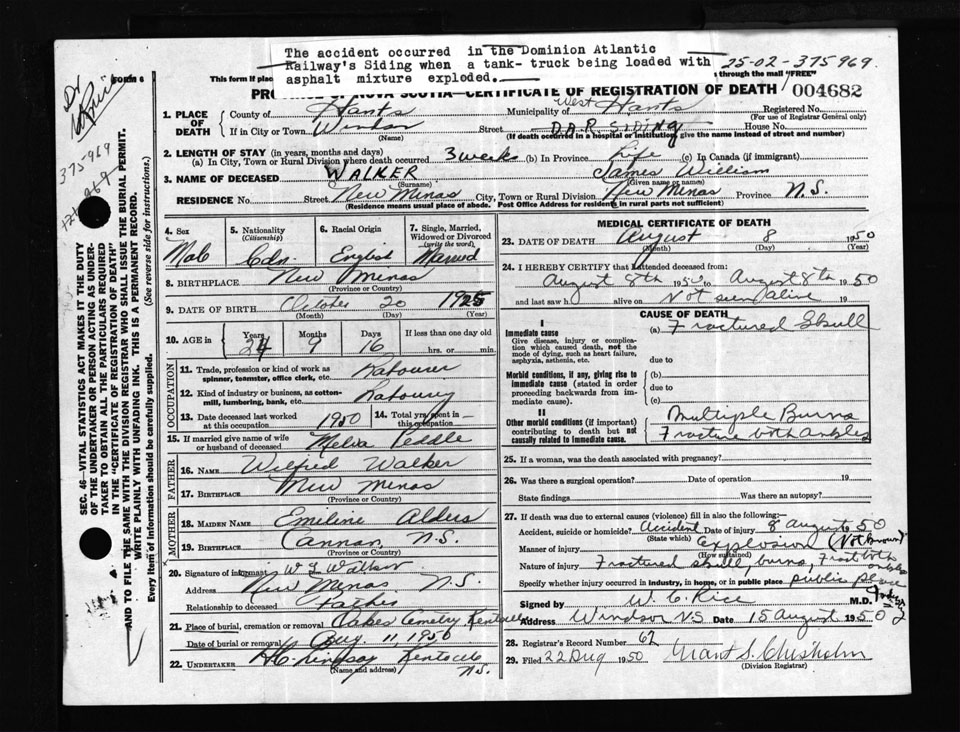 The accident occurred in the Dominion Atlantic
Railway's Siding when a tank-truck being loaded with
asphalt mixture exploded.
25-02-375969.
FORM 6
This form if place
through the mail "FREE"
PROVINCE OF NOVA SCOTIA—CERTIFICATE OF REGISTRATION OF DEATH
004682
1. PLACE OF DEATH
County of Hants Municipality of West Hants Registered No.
(For use of Registrar General only)
If in City or Town Windsor Street D.A.R. SIDING House No.
(Name) (If death occurred in a hospital or institution, give the name instead of street and number)
2. LENGTH OF STAY (in years, months and days)
(a) In City, Town or Rural Division where death occurred 3 weeks (b) In Province Life (c) In Canada (if immigrant)
3. NAME OF DECEASED WALKER James William
(Surname) (Given name or names)
RESIDENCE No. Street New Minas City, Town or Rural Division New Minas Province N.S.
(Residence means usual place of abode. Post Office Address for residents in rural parts not sufficient)
4. Sex 5. Nationality 6. Racial Origin 7. Single, Married, Widowed or Divorced
(Citizenship) (write the word)
Male Cdn. English Married
8. BIRTHPLACE New Minas
(Province or Country)
9. DATE OF BIRTH October 20 1925
(Month) (Day) (Year)
10. AGE in Years Months Days If less than one day old
24 9 16 hrs. or min.
OCCUPATION
11. Trade, profession or kind of work as spinner, teamster, office clerk, etc. Labourer
12. Kind of industry or business, as cotton-mill, lumbering, bank, etc. Labouring
13. Date deceased last worked at this occupation 1950 14. Total yrs. spent in this occupation
15. If married give name of wife or husband of deceased Melva Peddle
FATHER
16. NAME Wilfred Walker
17. BIRTHPLACE New Minas
(Province or Country)
MOTHER
18. MAIDEN NAME Emiline Alders
19. BIRTHPLACE Cannan, N.S.
(Province or Country)
20. Signature of informant W. Walker
Address New Minas N.S.
Relationship to deceased Father
21. Place of burial, cremation or removal Oakes Cemetry, Kentville
Date of burial or removal Aug. 11, 1950
22. UNDERTAKER H.C. Lindsay Kentville N.S.
(Name and address)
MEDICAL CERTIFICATE OF DEATH
23. DATE OF DEATH August 8 1950
(Month) (Day) (Year)
24. I HEREBY CERTIFY that I attended deceased from
August 8th 1950 to August 8th 1950
and last saw h alive on Not seen alive 19
CAUSE OF DEATH
I
Immediate cause
Give disease, injury or complication which caused death, not the mode of dying, such as heart failure, asphyxia, asthenia, etc.
(a) Fractured Skull
due to
Morbid conditions, if any, giving rise to immediate cause (stated in order proceeding backwards from immediate cause).
(b)
due to
(c)
II
Other morbid conditions (if important) contributing to death but not causally related to immediate cause.
Multiple Burns
Fracture both ankles
25. If a woman, was the death associated with pregnancy?
26. Was there a surgical operation? Date of operation 19
State findings Was there an autopsy?
27. If death was due to external causes (violence) fill in also the following:—
Accident, suicide or homicide? Accident Date of injury 8 August 1950
(State which)
Manner of injury explosion (Not Known)
(How sustained)
Nature of injury Fractured skull, burns, Fract both ankles
Specify whether injury occurred in industry, in home, or in public place public place
Industry
Signed by W. C. Rice M.D.
Address Windsor NS Date 15 August 1950
28. Registrar's Record Number 62
29. Filed 22 Aug 1950 Grant S. Chisholm
(Division Registrar)
Dr
Rice
375969
SEC. 46—VITAL STATISTICS ACT MAKES IT THE DUTY
OF THE UNDERTAKER OR PERSON ACTING AS UNDER-
TAKER TO OBTAIN ALL THE PARTICULARS REQUIRED
IN THE "CERTIFICATE OF REGISTRATION OF DEATH"
AND TO FILE THE SAME WITH THE DIVISION REGISTRAR WHO SHALL ISSUE THE BURIAL PERMIT.
WRITE PLAINLY WITH UNFADING INK. THIS IS A PERMANENT RECORD.
Every item of Information should be carefully supplied. (See reverse side for instructions.)